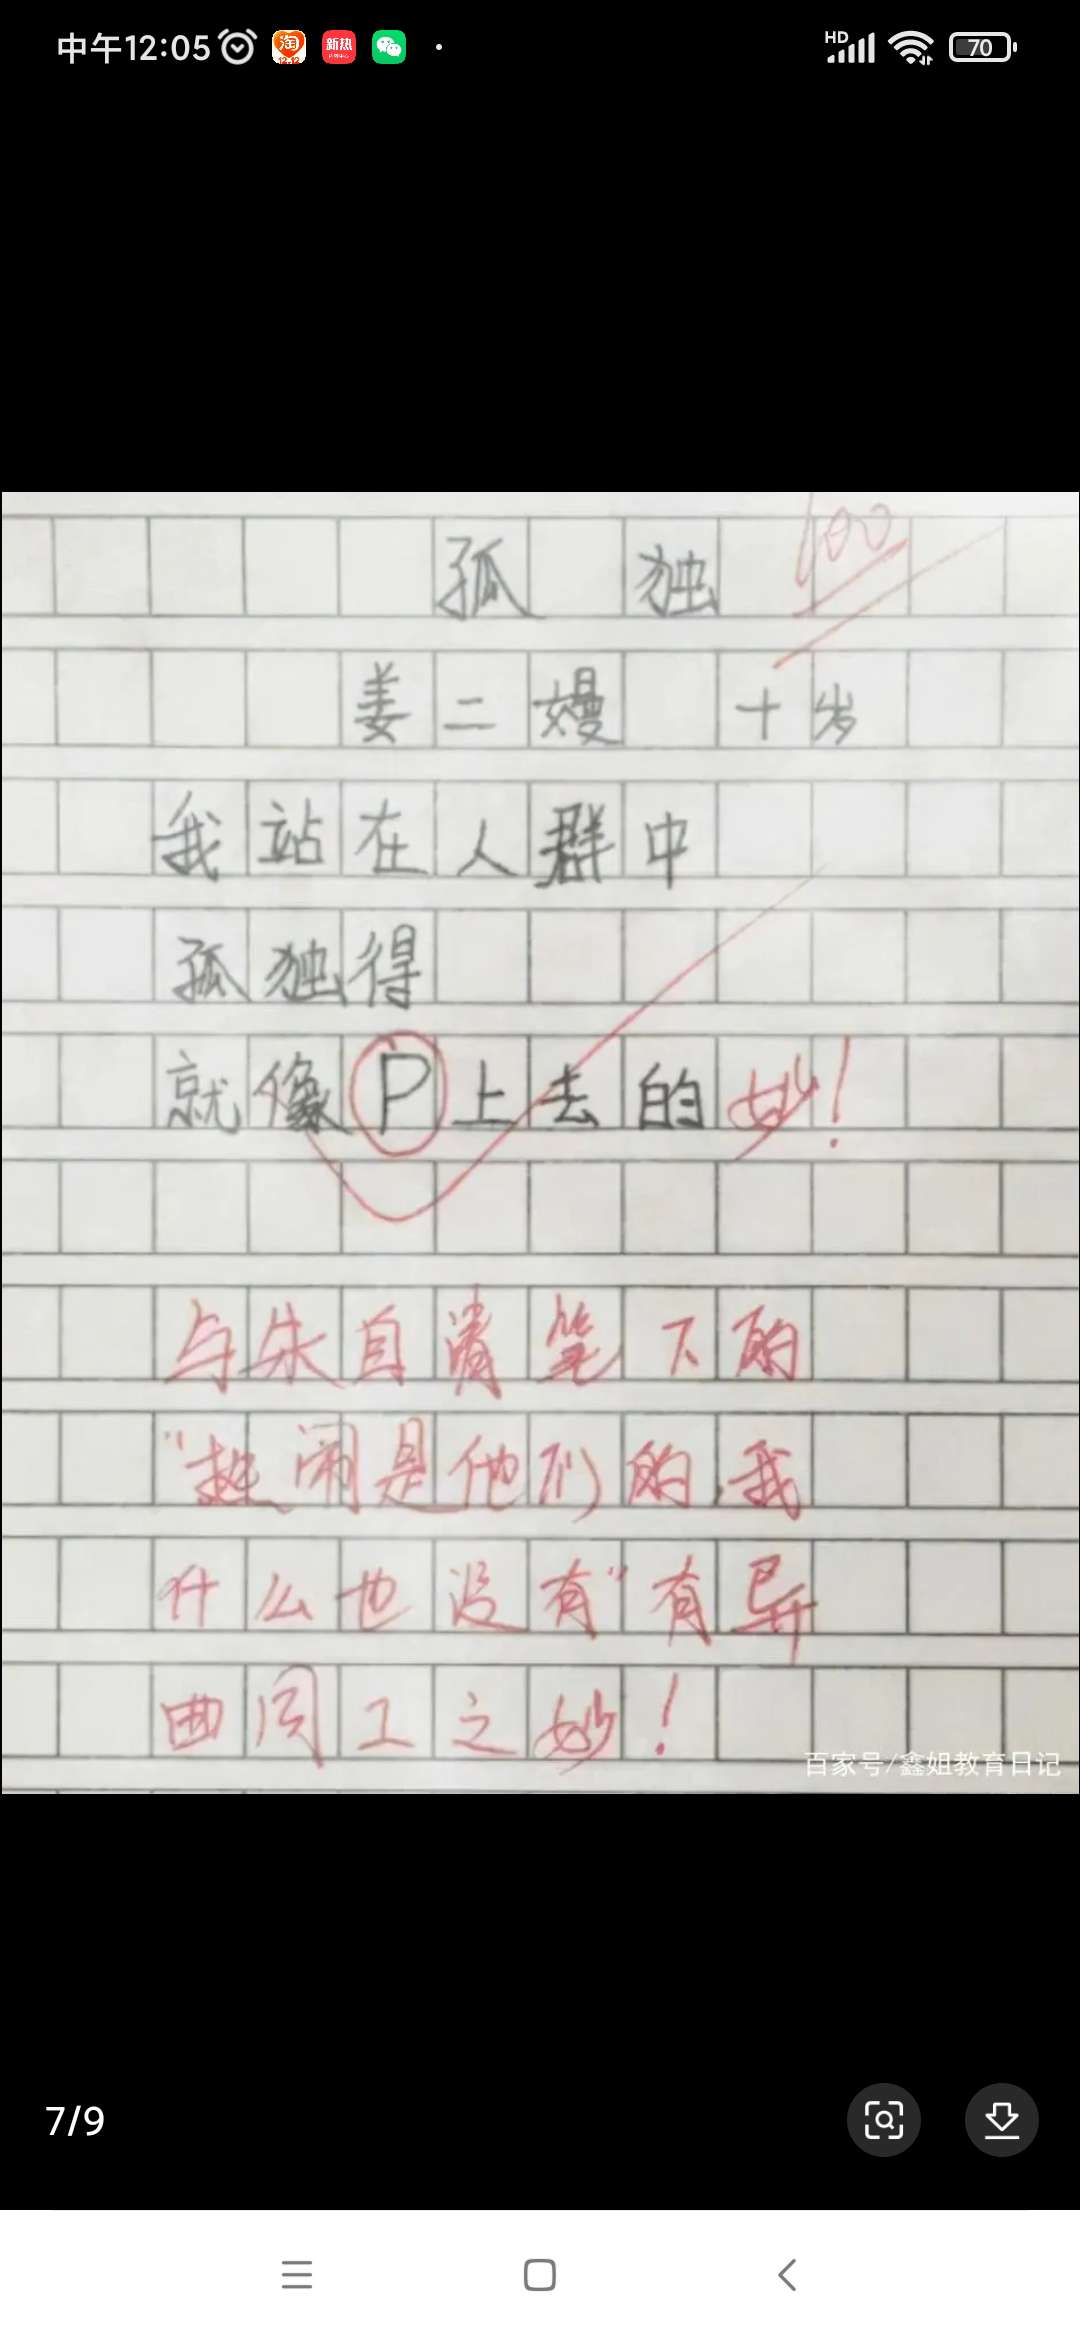 中午12:05
淘
12.12
新热
HD
70
100
孤独
姜二嫚 十岁
我站在人群中
孤独得
就像P上去的 妙!
与朱自清笔下的
“热闹是他们的,我
什么也没有”有异
曲同工之妙!
百家号/鑫姐教育日记
7/9